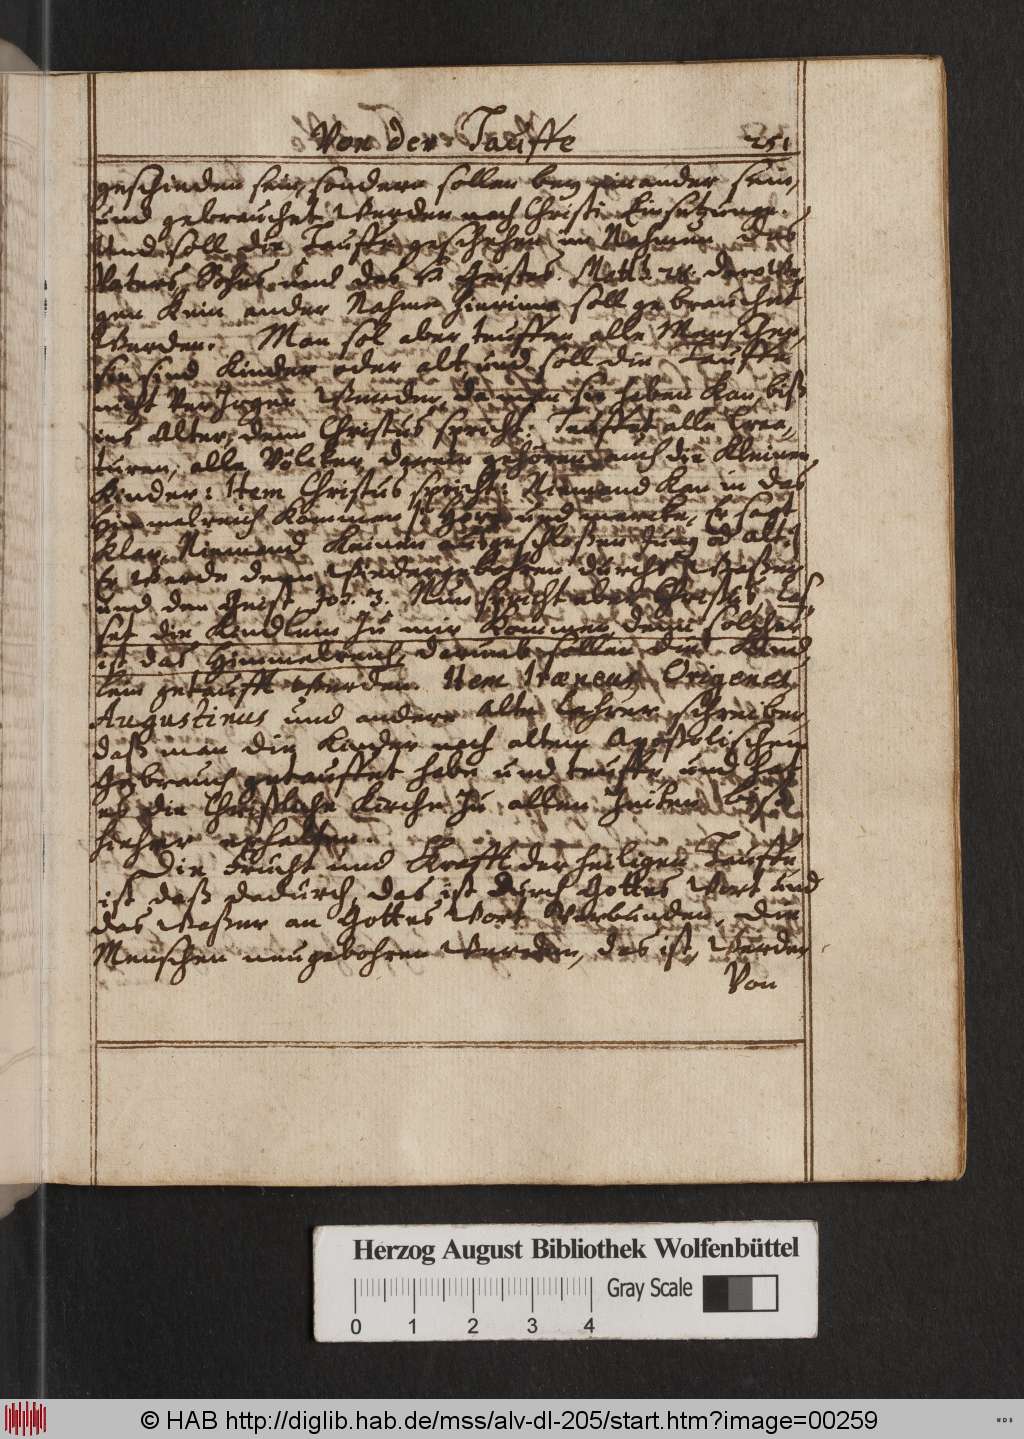 Von der Tauffe 251
geschieden sein, sondern sollen bey einander sein,
und gebrauchet werden nach Christi Einsetzunge.
Und soll die Tauffe geschehen im Nahmen des
Vaters, Sohns und des H. Geistes. Matth. 28. derowe-
gen kein ander Nahme hierinne soll gebrauchet
werden. Man sol aber teuffen alle Menschen,
sie sind Kinder oder alt, und soll die Tauffe
nicht verzogen werden, da man sie haben kan, biß
ins Alter, denn Christus spricht: Teuffet alle Crea-
turen, alle Völcker, darein gehören auch die kleinen
Kinder: Item Christus spricht: Niemand kan in das
Himmelreich kommen, höre und mercke, Er sagt
klar, Niemand keinen ausgeschloßen jung od alt
Er werde denn wiedergebohren durchs Waßer
und den Geist Joh. 3. Nun spricht aber Christus, Laß-
set die Kindlein zu mir kommen, denn solcher
ist das Himmelreich, darumb sollen die Kind-
lein getaufft werden. Item Iræneus, Origenes
Augustinus und andere alte Lehrer schreiben,
daß man die Kinder nach altem Apostolischem
Gebrauch getauffet habe und teuffe, und hat
es die Christliche Kirche zu allen Zeiten biß
hieher erhalten.
Die Frucht und Krafft der heiligen Tauffe
ist daß dadurch, das ist durch Gottes Wort und
das Waßer an Gottes Wort verbunden, die
Menschen neugebohren werden, das ist, werden
Von
Herzog August Bibliothek Wolfenbüttel
Gray Scale
0 1 2 3 4
© HAB http://diglib.hab.de/mss/alv-dl-205/start.htm?image=00259